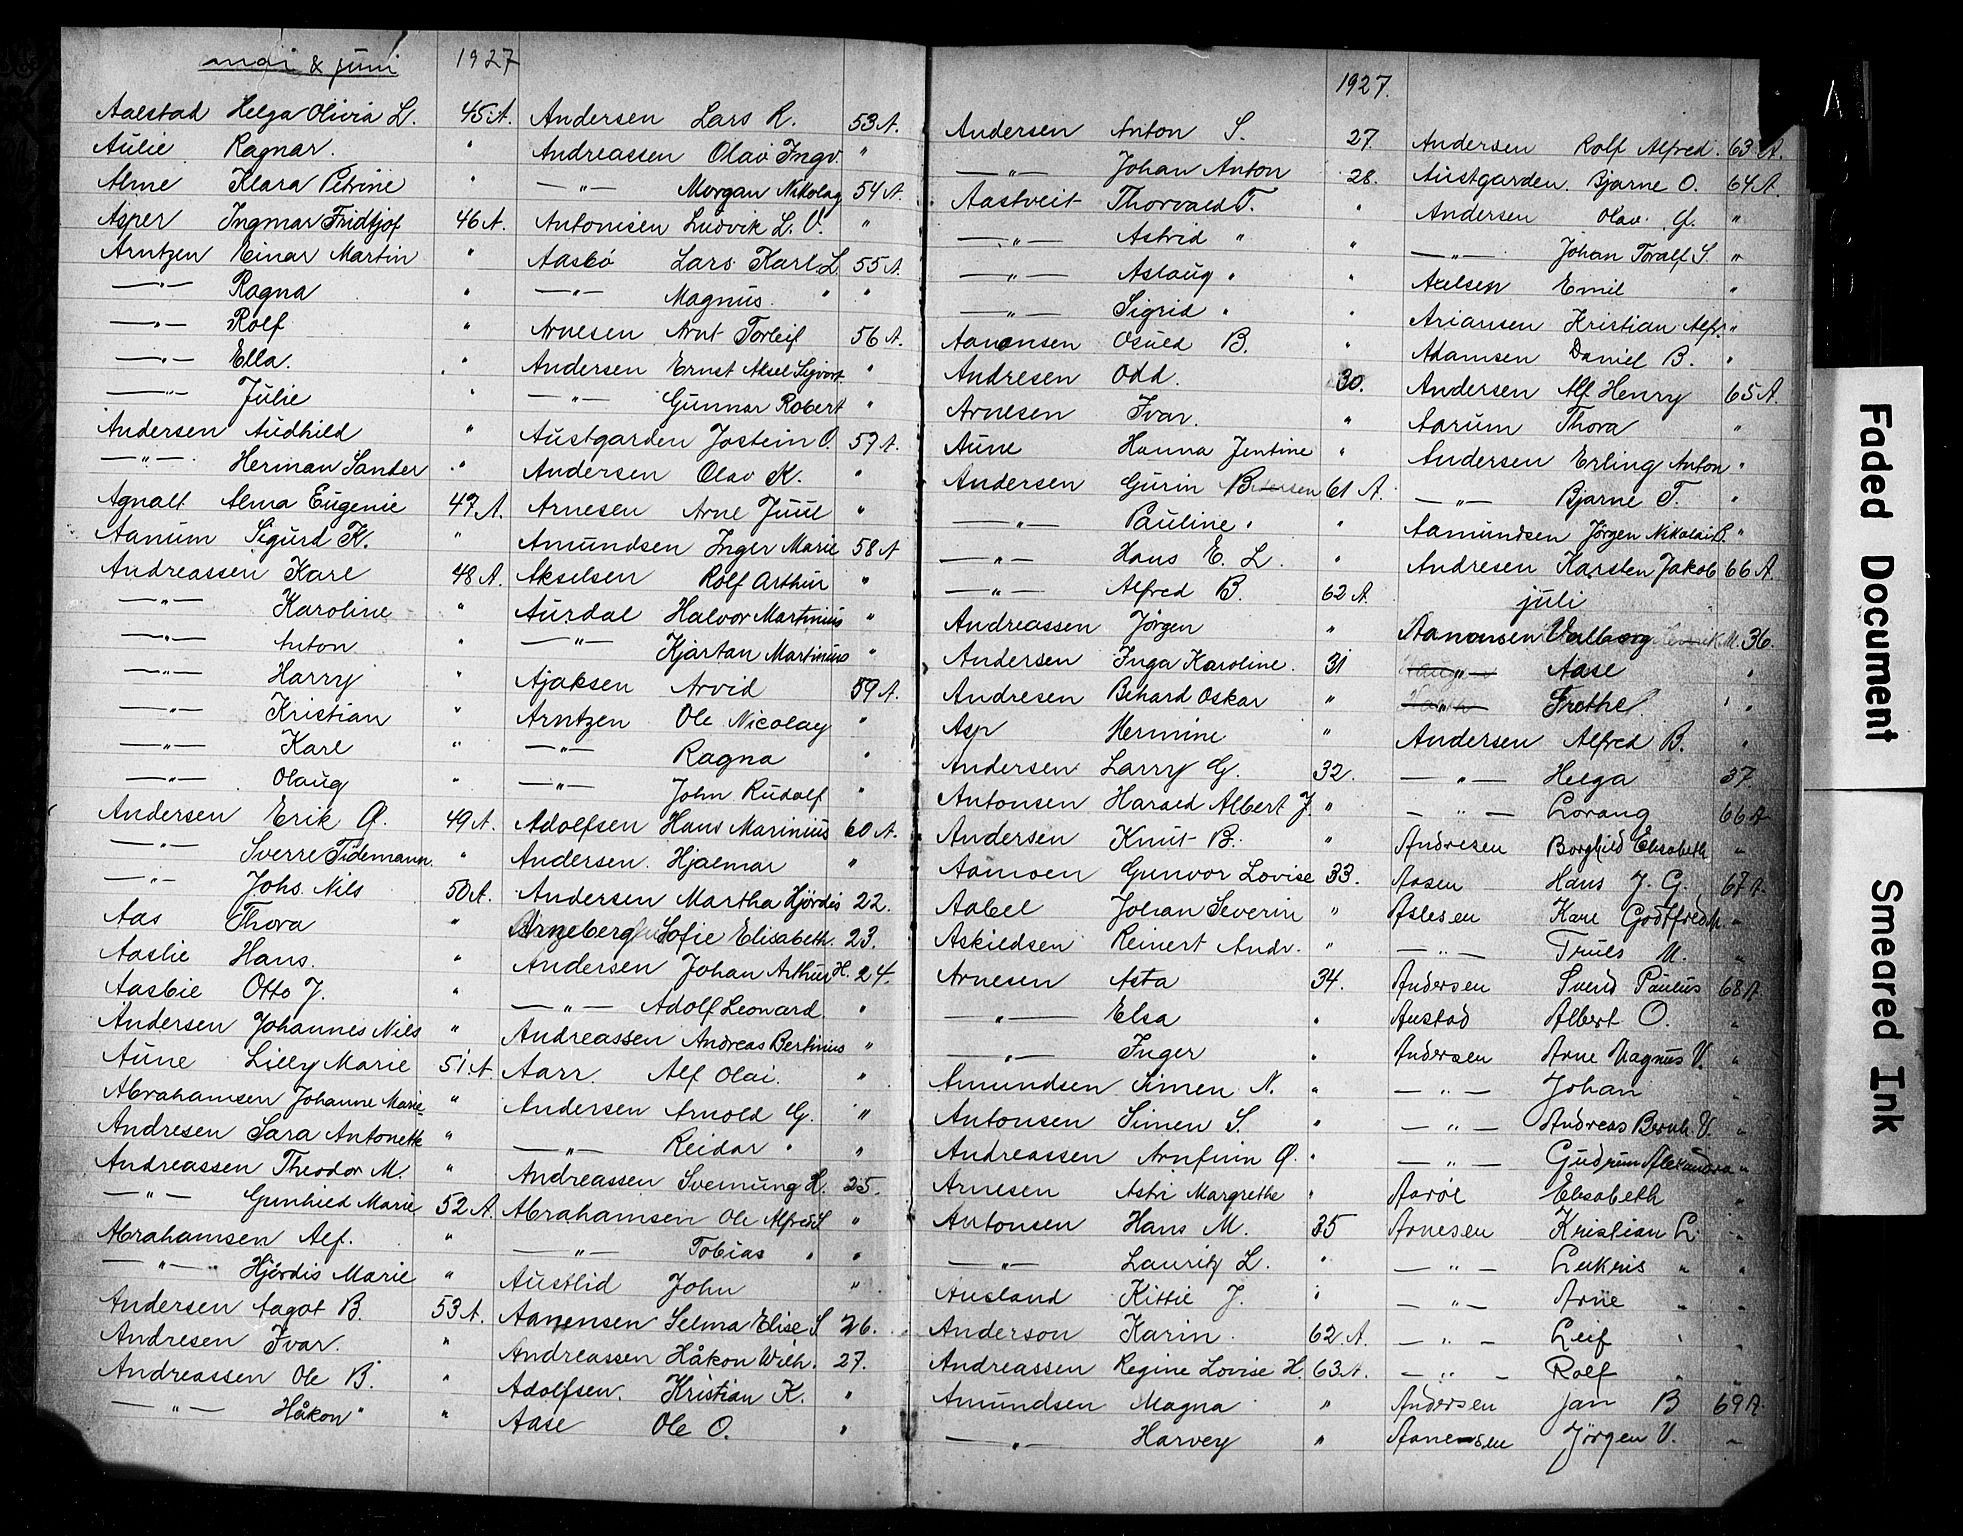 mai & juni 1927
Aalstad Helga Olivia L. 45 A.
Aulie Ragnar. "
Alme Klara Petrine "
Asper Ingmar Fridtjof 46 A.
Arntzen Einar Martin "
—"— Ragna "
—"— Rolf "
—"— Ella. "
—"— Julie "
Andersen Audhild "
—"— Herman Sander "
Agnalt Alma Eugenie 47 A.
Aanum Sigurd K. "
Andreassen Kare 48 A.
—"— Karoline "
—"— Anton "
—"— Harry "
—"— Kristian "
—"— Karl "
—"— Olaug "
Andersen Erik A. 49 A.
—"— Sverre Tidemann "
—"— Johs. Nils 50 A.
Aas Thora "
Aaslie Hans. "
Aasbie Otto J. "
Andersen Johannes Nils "
Aune Lilly Marie 51 A.
Abrahamsen Johanne Marie "
Andresen Sara Antonette "
Andreassen Theodor M. "
—"— Gunhild Marie 52 A.
Abrahamsen Alf. "
—"— " Hjördis Marie "
Andersen Aagot B. 53 A.
Andresen Ivar. "
Andreassen Ole B. "
—"— Håkon " "
Andersen Lars R. 53 A.
Andreassen Olav Ingv. "
—"— Morgan Nikolay 54 A.
Antonisen Ludvik L. O. "
Aasbö Lars Karl L 55 A.
—"— Magnus. " "
Arnesen Arnt Torleif 56 A.
Andersen Ernst Aksel Sigvart. "
—"— Gunnar Robert "
Austgarden Jostein O. 57 A.
Andersen Olav K. "
Arnesen Arne Juul "
Amundsen Inger Marie 58 A
Akselsen Rolf Arthur "
Aurdal Halvor Martinius "
—"— Kjartan Martinius "
Ajaksen Arvid 59 A.
Arntzen Ole Nicolay "
—"— Ragna "
—"— John Rudolf "
Adolfsen Hans Marinius 60 A.
Andersen. Hjalmar "
Andersen Martha Hjördis 22.
Arneberg Sofie Elisabeth. 23.
Andersen Johan Arthur H. 24.
—"— Adolf Leonard. "
Andreassen Andreas Bertinius "
Aarr. Alf Olai. "
Andersen Arnold G. "
—"— Reidar " "
Andreassen Svenung H. 25.
Abrahamsen Ole Alfred S "
—"— Tobias " "
Austlid John "
Aanensen Selma Elise S 26.
Andreassen Håkon Wilh. 27.
Adolfsen. Kristian K. "
Aase Ole O. "
1927.
Andersen Anton S. 27.
—"— Johan Anton 28.
Aastveit Thorvald T. "
—"— Astrid " "
—"— Aslaug " "
—"— Sigrid " "
Aanonsen Osuld B. "
Andresen Odd. 30.
Arnesen Ivar. "
Aune Hanna Jentine "
Andersen Gurin 61 A.
—"— Pauline " "
—"— Hans E. L. "
—"— Alfred B. 62 A.
Andreassen Jörgen "
Andersen Inga Karoline. 31
Andresen Behard Oskar "
Asp Hermine "
Andersen Larry G. 32.
Antonsen Harald Albert J. "
Andersen Knut B. "
Aamoen Gunvor Lovise 33.
Aabel Johan Severin "
Askildsen Reinert Andr. "
Arnesen Asta 34.
—"— Elsa "
—"— Inger "
Amundsen Simen N. "
Antonsen Simen S. "
Andreassen Arnfinn O. "
Arnesen Astri Margrethe "
Antonsen Hans M. 35
—"— Lauritz L. "
Ausland Kittie J. "
Anderson Karin. 62 A.
Andreassen Regine Lovise H. 63 A.
Amundsen Magna "
—"— Harvey "
Andersen Rolf Alfred. 63 A.
Austgarden. Bjarne O. 64 A.
Andersen Olav. G. "
—"— Johan Toralf S. "
Axelsen Emil "
Ariansen Kristian Alfr. "
Adamsen Daniel B. "
Andersen Alf Henry 65 A.
Aarum Thora "
Andersen Erling Anton "
—"— Bjarne T. "
Aamundsen Jörgen Nikolai "
Andresen Karsten Jakob 66 A.
juli
Aanonsen Valborg M. 36.
—"— Aase "
—"— Grethe "
Andersen Alfred B. "
—"— Helga 37.
—"— Lorang 66 A
Andresen Borghild Elisabeth "
Aasen Hans J. G. 67 A.
Aslesen Kare Godtfred "
—"— Truls M. "
Andersen Svend Paulus 68 A.
Austad Albert O. "
Andersen Arne Magnus V. "
—"— Johan "
—"— Andreas Bernh. V. "
—"— Gudrun Alexandra "
Aaröe Elisabeth "
Arnesen Kristian L. "
—"— " "
—"— Arne " "
—"— Leif " "
—"— Rolf " "
Andersen Jan B 69 A.
Aanensen Jörgen V. "
Faded Document
Smeared Ink